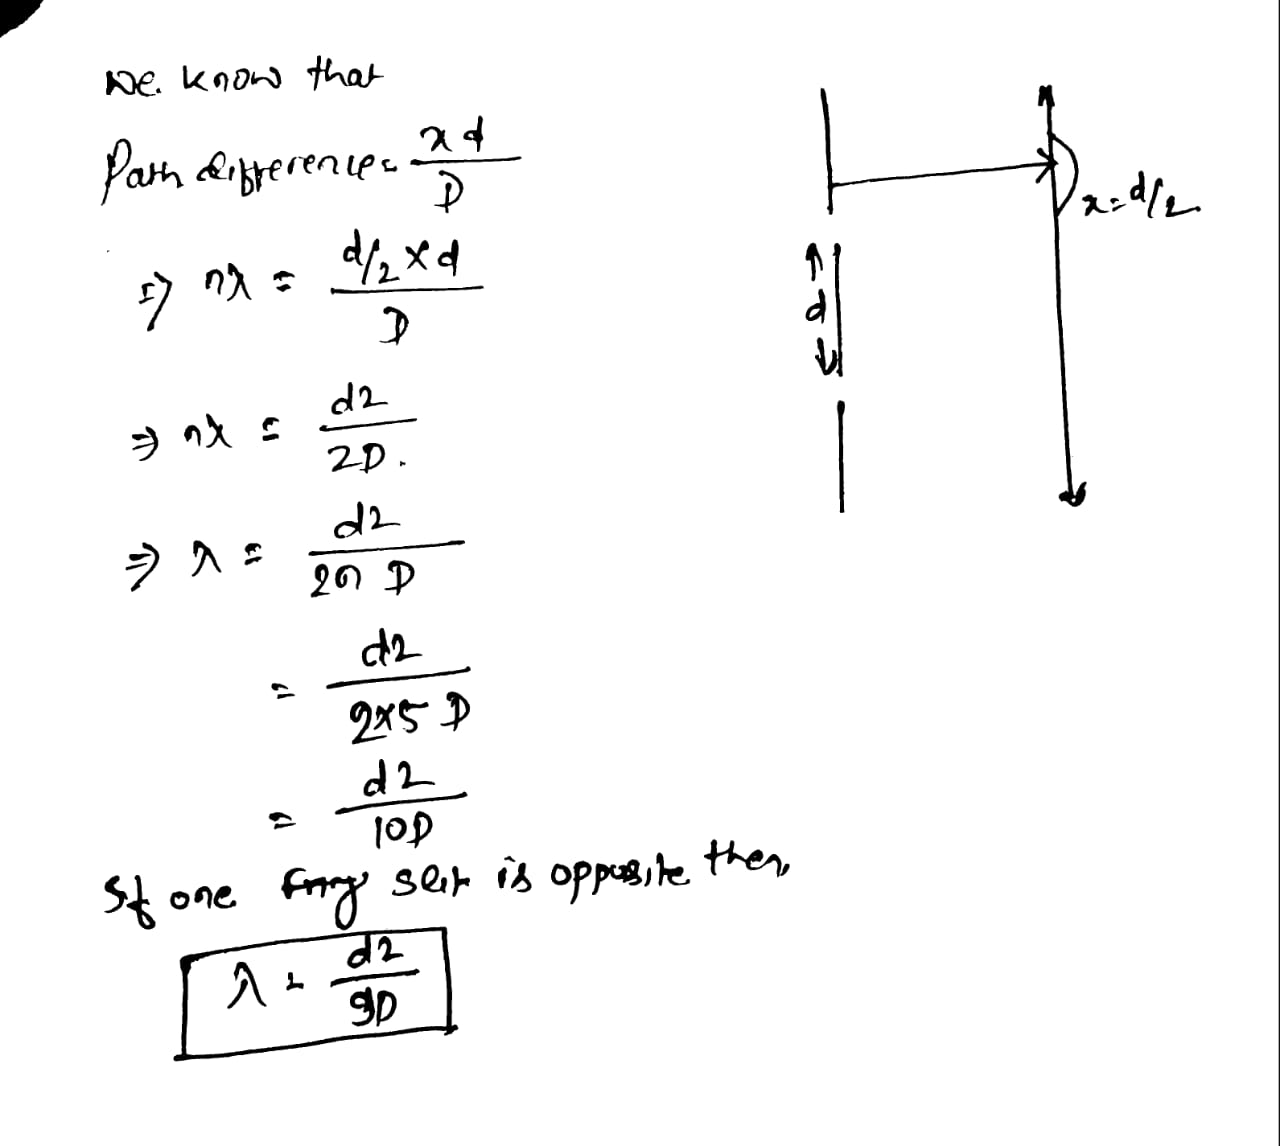 We. know that
Path differences = xd/D
⇒ nλ = d/2 × d / D
⇒ nλ = d2 / 2D.
⇒ λ = d2 / 2n D
= d2 / 2×5 D
= d2 / 10D
If one slit is opposite then,
λ = d2 / 9D
x = d/2
d